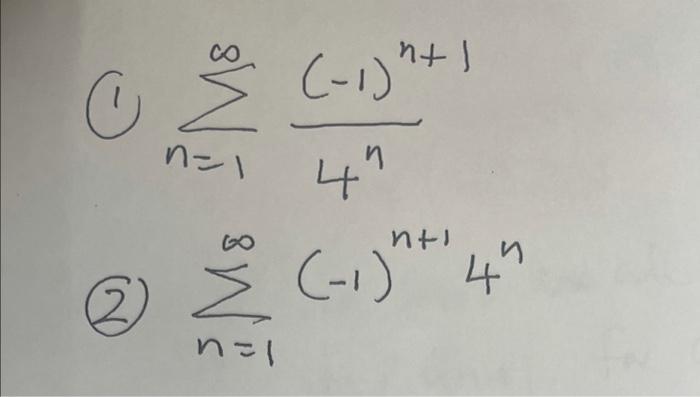 ① ∞ ∑ n=1 (-1)^{n+1} / 4^n
② ∞ ∑ n=1 (-1)^{n+1} 4^n